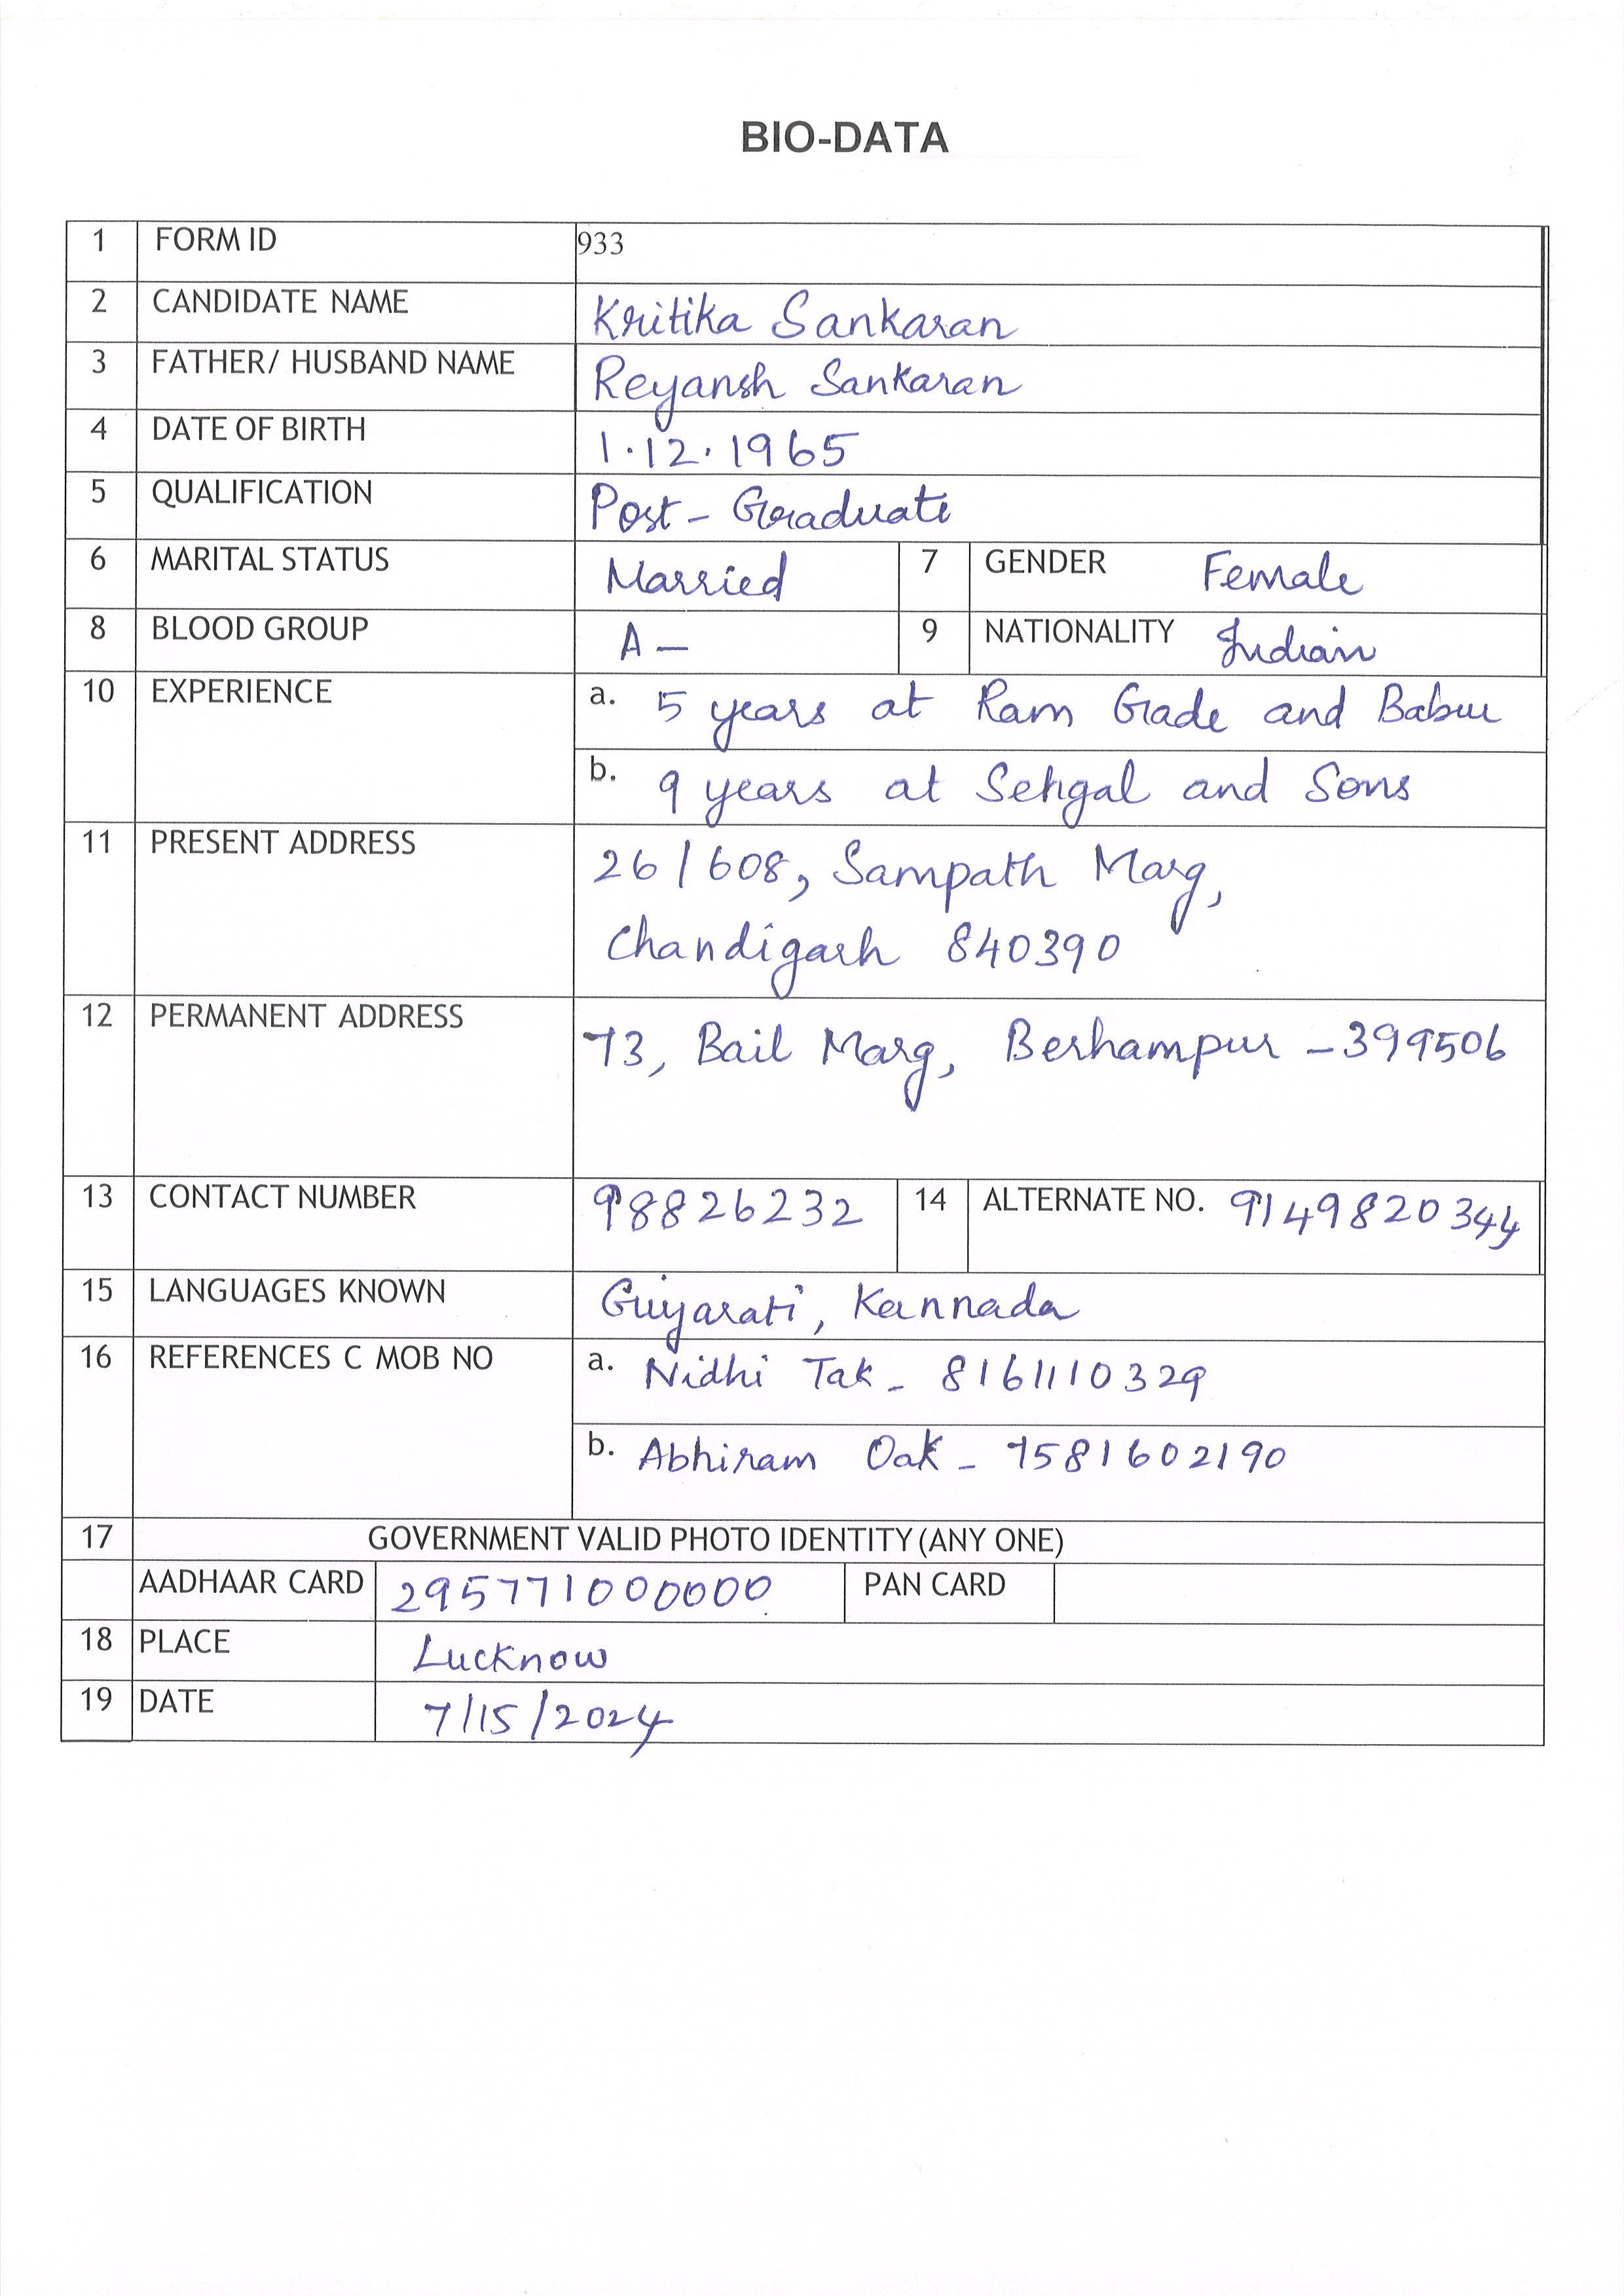 BIO-DATA
1 FORM ID 933
2 CANDIDATE NAME Kritika Sankaran
3 FATHER/ HUSBAND NAME Reyansh Sankaran
4 DATE OF BIRTH 1.12.1965
5 QUALIFICATION Post-Graduate
6 MARITAL STATUS Married 7 GENDER Female
8 BLOOD GROUP A- 9 NATIONALITY Indian
10 EXPERIENCE a. 5 years at Ram Gade and Babu
b. 9 years at Sehgal and Sons
11 PRESENT ADDRESS 26/608, Sampath Marg,
Chandigarh 840390
12 PERMANENT ADDRESS 73, Bail Marg, Berhampur -399506
13 CONTACT NUMBER 98826232 14 ALTERNATE NO. 9149820344
15 LANGUAGES KNOWN Gujarati, Kannada
16 REFERENCES C MOB NO a. Nidhi Tak - 8161110329
b. Abhiram Oak - 7581602190
17 GOVERNMENT VALID PHOTO IDENTITY (ANY ONE)
AADHAAR CARD 295771000000 PAN CARD
18 PLACE Lucknow
19 DATE 7/15/2024